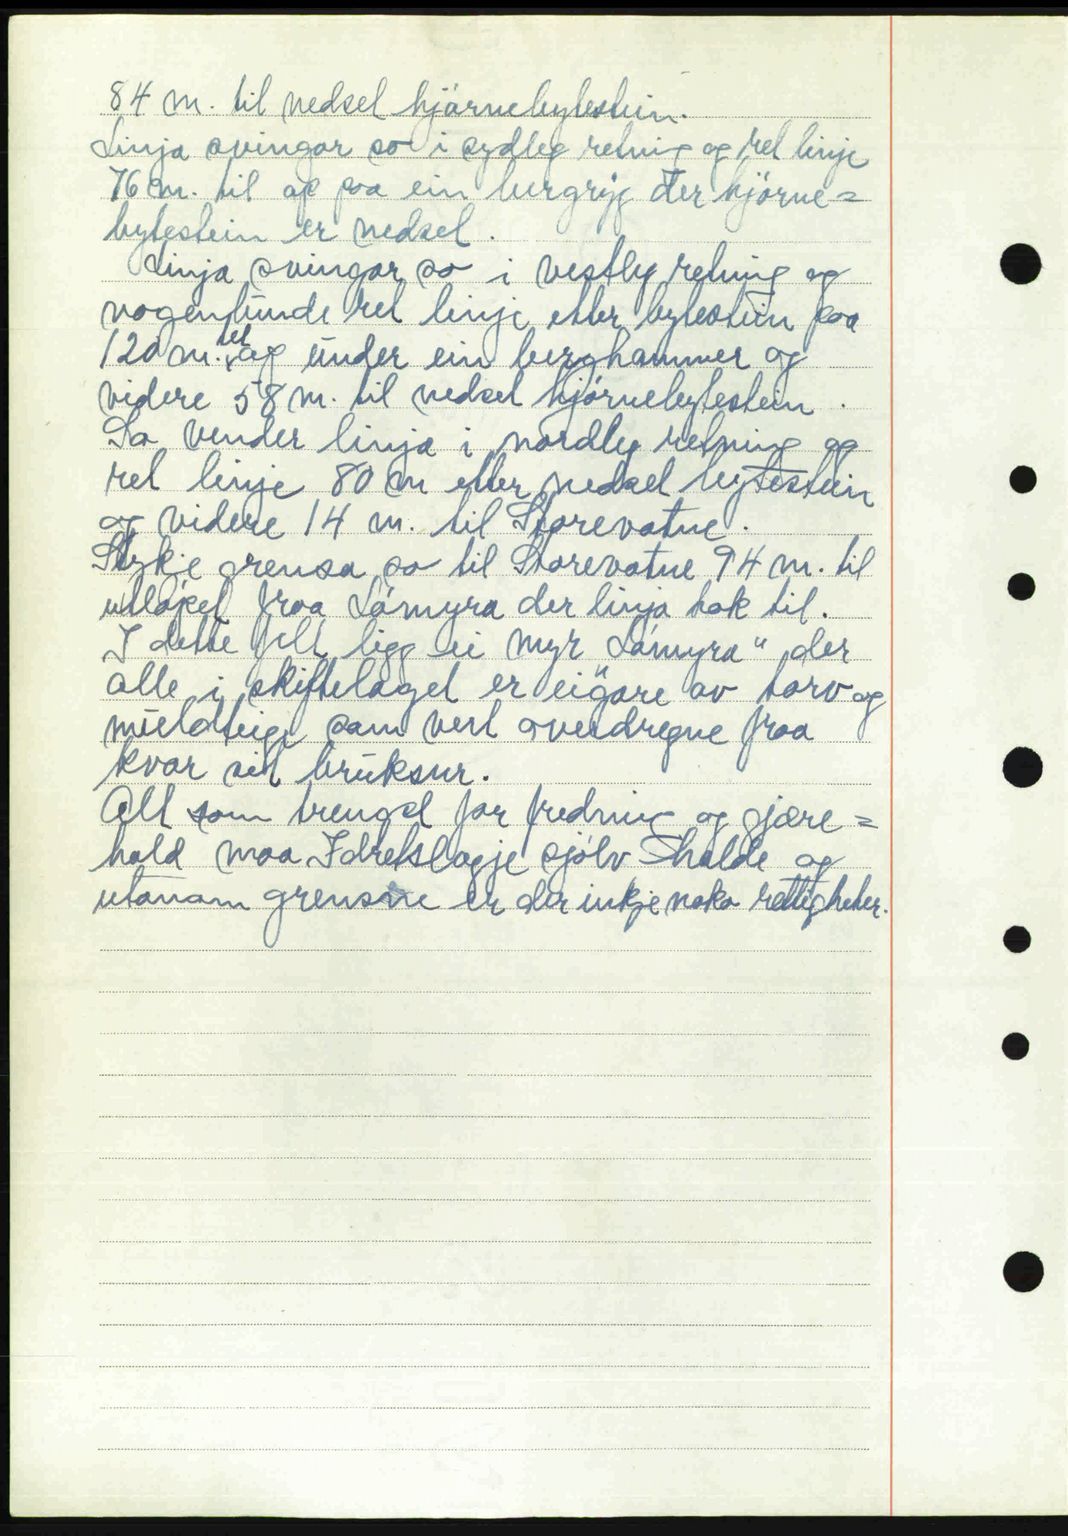 84 m. til nedsel hjørnebytestein.
Linja svingar so i sydleg retning og ret linje
76 m. til op paa ein bergryg der hjørne=
bytestein er nedsel.
Linja svingar so i vestleg retning og
ret linje etter bytestein paa
120 m. til og under ein berghammer og
videre 58 m. til nedsel hjørnebytestein.
So vender linja i nordleg retning og
ret linje 80 m etter nedsel bytestein
og videre 14 m. til Storevatne.
Stykje grensa so til Storevatne 94 m. til
utløpet fraa Lómyra der linja tok til.
I dette felt ligg ei myr "Lómyra" der
alle i skiftelaget er eigare av torv og
som vert overdregne fraa
kvar sit bruksnr.
Alt som trengst for fredning og gjære=
hald maa Idretslagje sjølv halde og
utanom grensone er der inkje noko rettigheter.